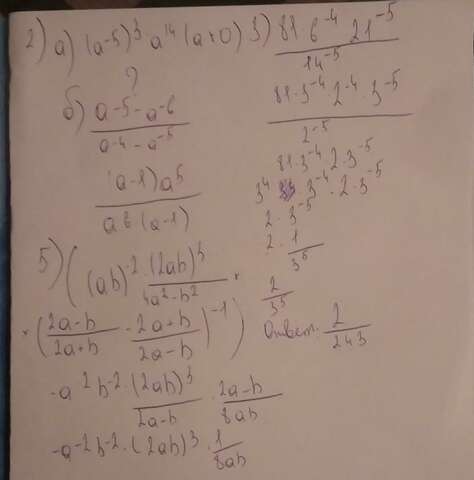 2) а) (a-5)³ · a¹⁴ (a≠0)
?
б) a-5-a-6
a-4-a⁻⁵
(a-1)a⁵
a6(a-1)
3) 81 6⁻⁴ 21⁻⁵
14⁻⁵
81·3⁻⁴ 2⁻⁴·3⁻⁵
2⁻⁵
81·3⁻⁴·2·3⁻⁵
3⁴ 3⁻⁴·2·3⁻⁵
2·3⁻⁵
2·1
3⁵
2
3⁵
Ответ: 2
243
5) ((ab)⁻²·(2ab)³ ×
4a²-b²
×(2a-b - 2a+b)⁻¹)
2a+b 2a-b
-a⁻²b⁻²·(2ab)³ · 2a-b
2a-b 8ab
-a⁻²b⁻²·(2ab)³·1
8ab